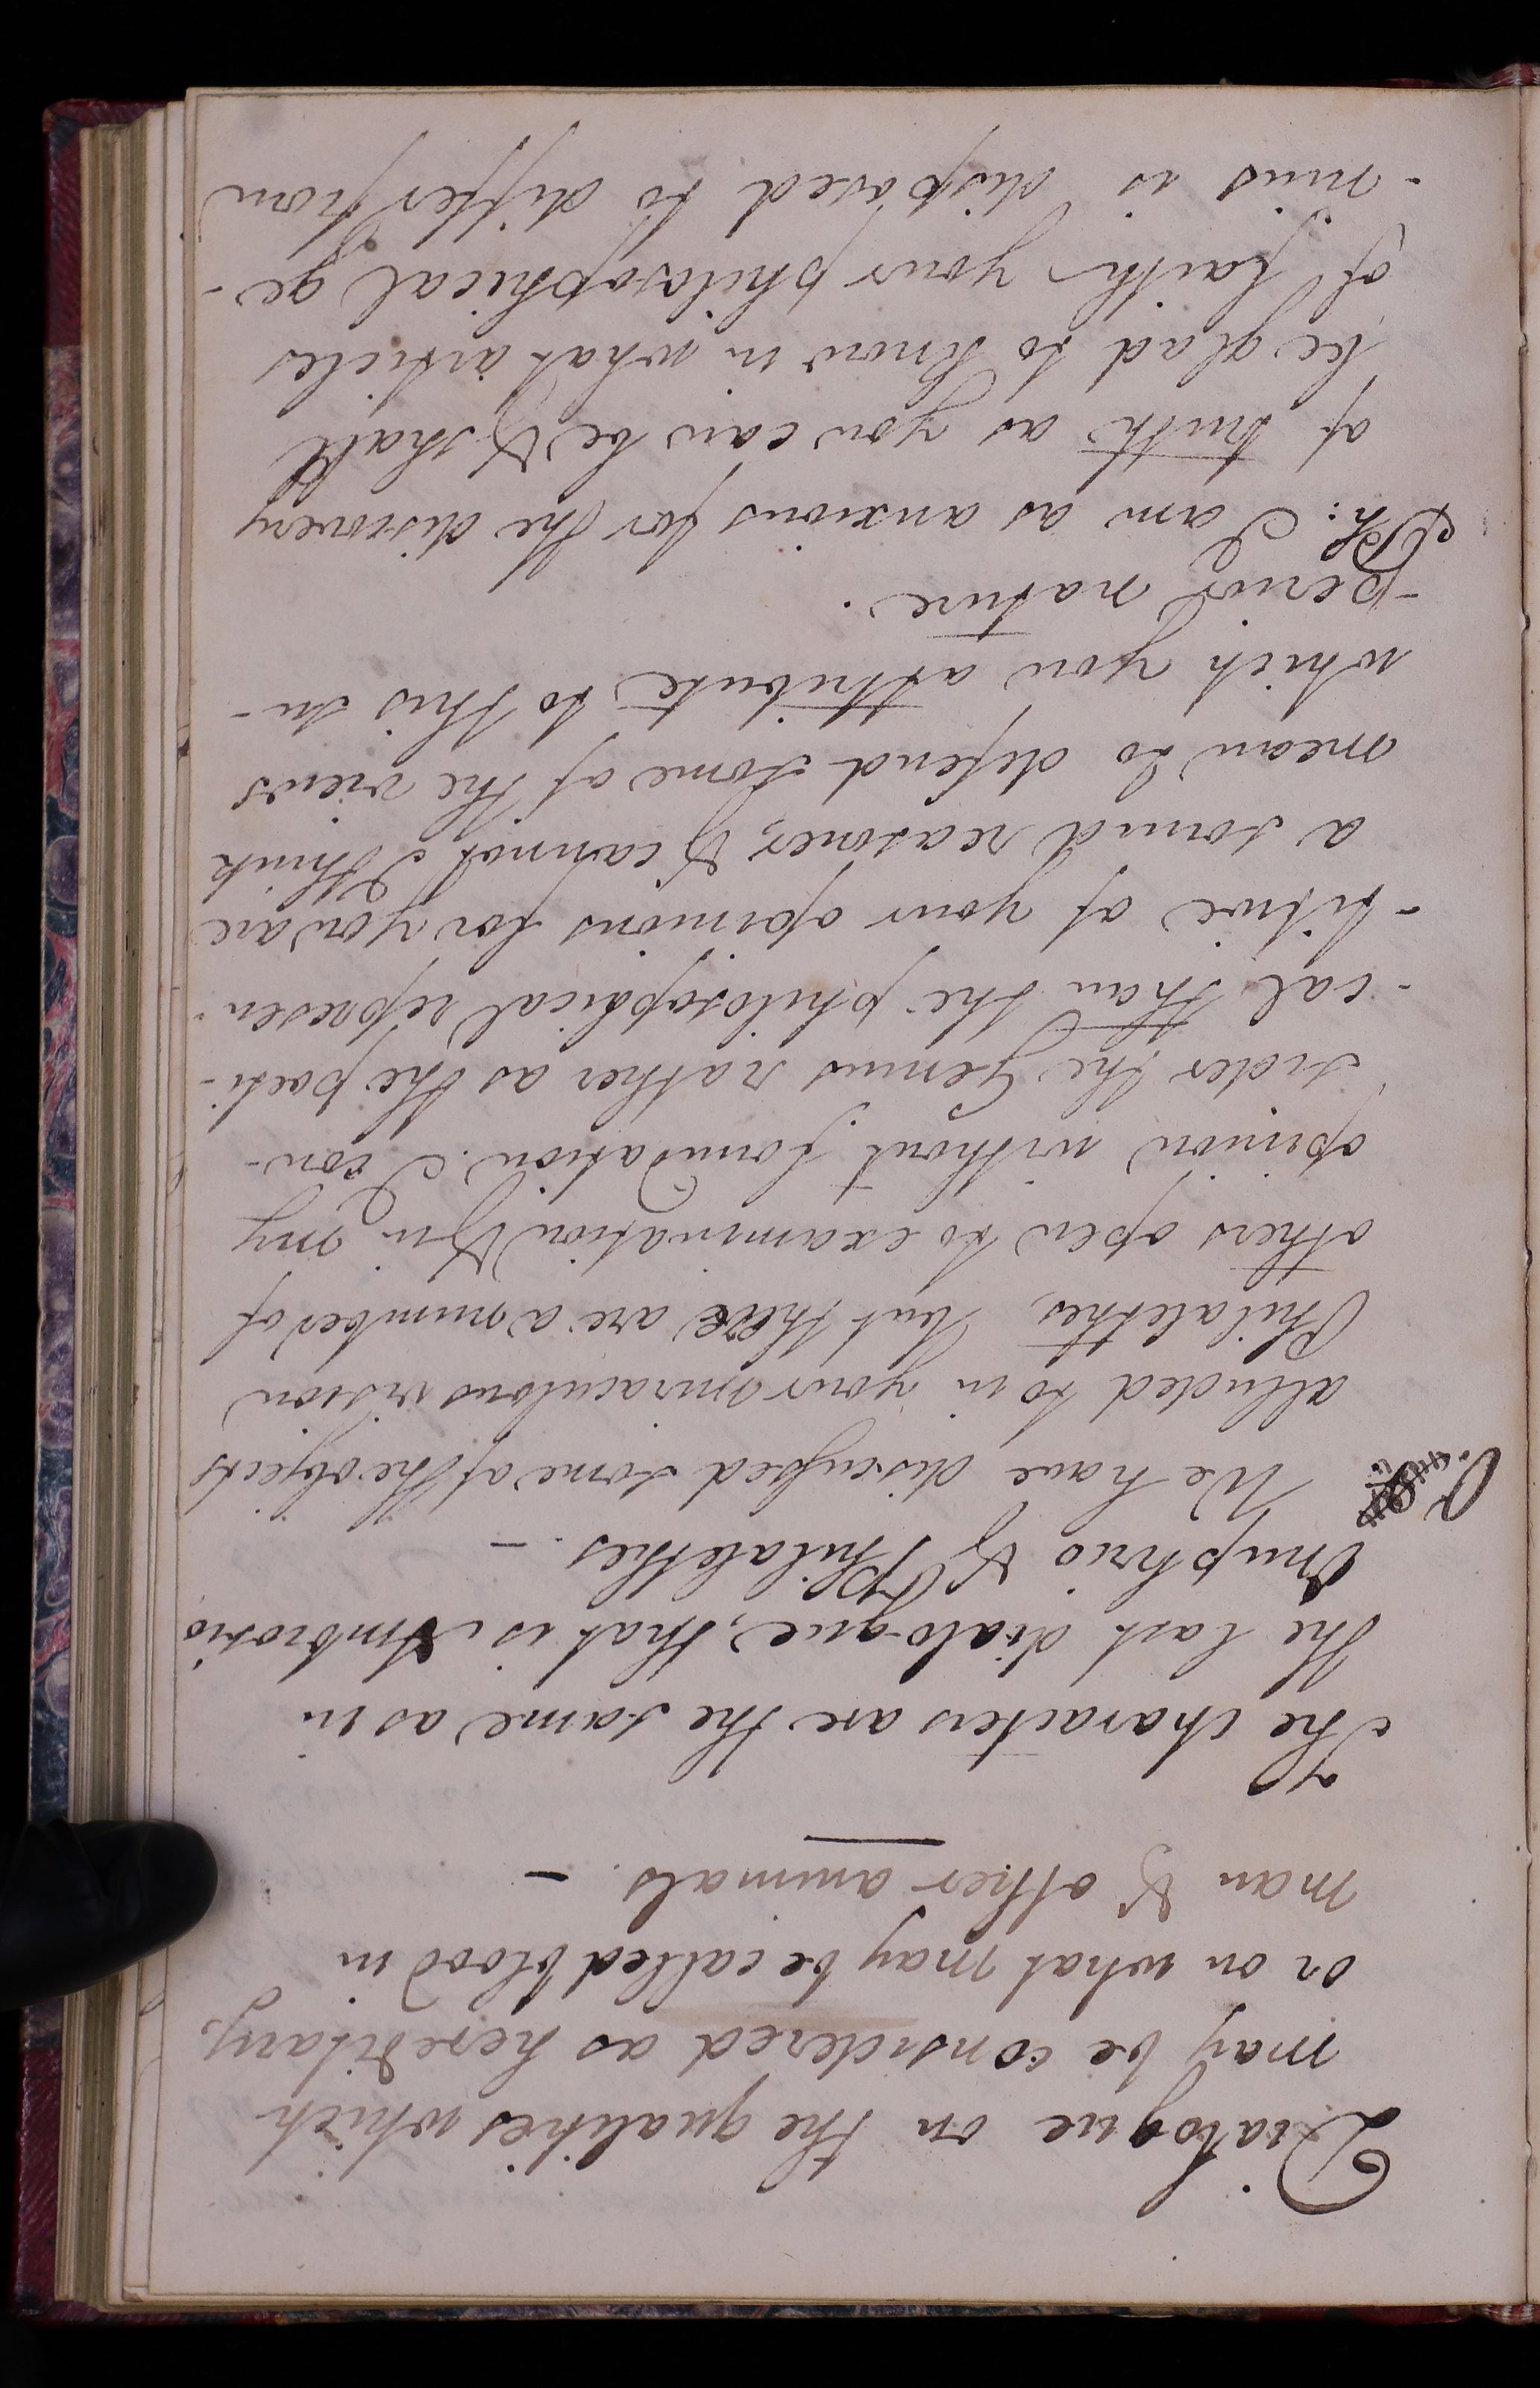 Dialogue on the qualities which
may be considered as hereditary,
or on what may be called blood in
man & other animals. -
The characters are the same as in
the last dialogue, that is Ambrosio
Onuphrio & Philalethes. -
O. We have discussed some of the objects
alluded to in your miraculous vision
Philalethes, but there are a number of
others open to examination & in my
opinion without foundation. I con-
sider the Genius rather as the poeti-
-cal than the philosophical represen-
-titive of your opinions for you are
a sound reasoner, & cannot I think
mean to defend some of the views
which you attribute to this su-
-perior nature.
Ph: I am as anxious for the discovery
of truth as you can be & shall
be glad to know in what articles
of faith your philosophical ge-
-nius is disposed to differ from